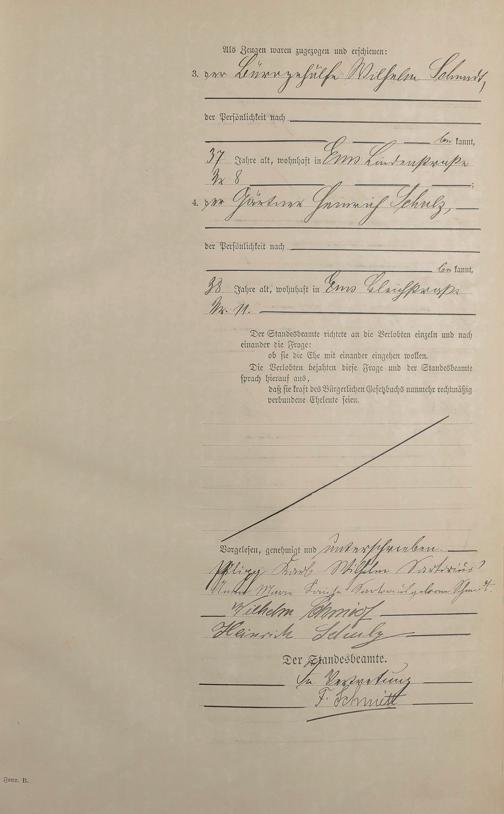 Als Zeugen waren zugezogen und erschienen:
3. der Bürogehülfe Wilhelm Schmidt,
der Persönlichkeit nach
be kannt,
37 Jahre alt, wohnhaft in Ems Lindenstraße
Nr 8 ;
4. der Gärtner Heinrich Schulz,
der Persönlichkeit nach
be kannt,
38 Jahre alt, wohnhaft in Ems Bleichstraße
Nr. 11.
Der Standesbeamte richtete an die Verlobten einzeln und nach
einander die Frage:
ob sie die Ehe mit einander eingehen wollen.
Die Verlobten bejahten diese Frage und der Standesbeamte
sprach hierauf aus,
daß sie kraft des Bürgerlichen Gesetzbuchs nunmehr rechtmäßig
verbundene Eheleute seien.
Vorgelesen, genehmigt und unterschrieben.
Philipp Karl Wilhelm
Maria geborene Schmidt.
Wilhelm Schmidt
Heinrich Schulz
Der Standesbeamte.
In Vertretung
F. Schmitt
B.